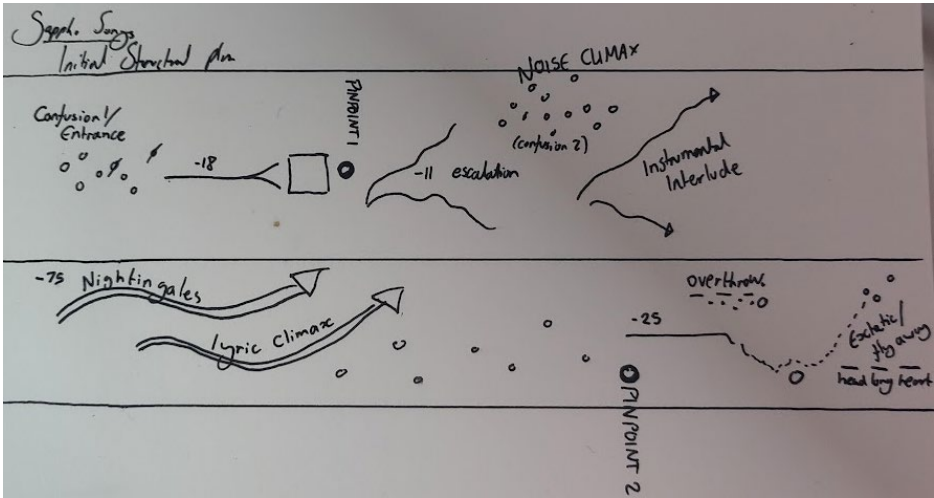 Sapph. Songs
Initial Structural plan
Confusion 1/
Entrance
-18
PINPOINT 1
-11 escalation
NOISE CLIMAX
(confusion 2)
Instrumental
Interlude
-75 Nightingales
lyric climax
-25
PINPOINT 2
overthrows
Exctatic/
fly away
head long heart